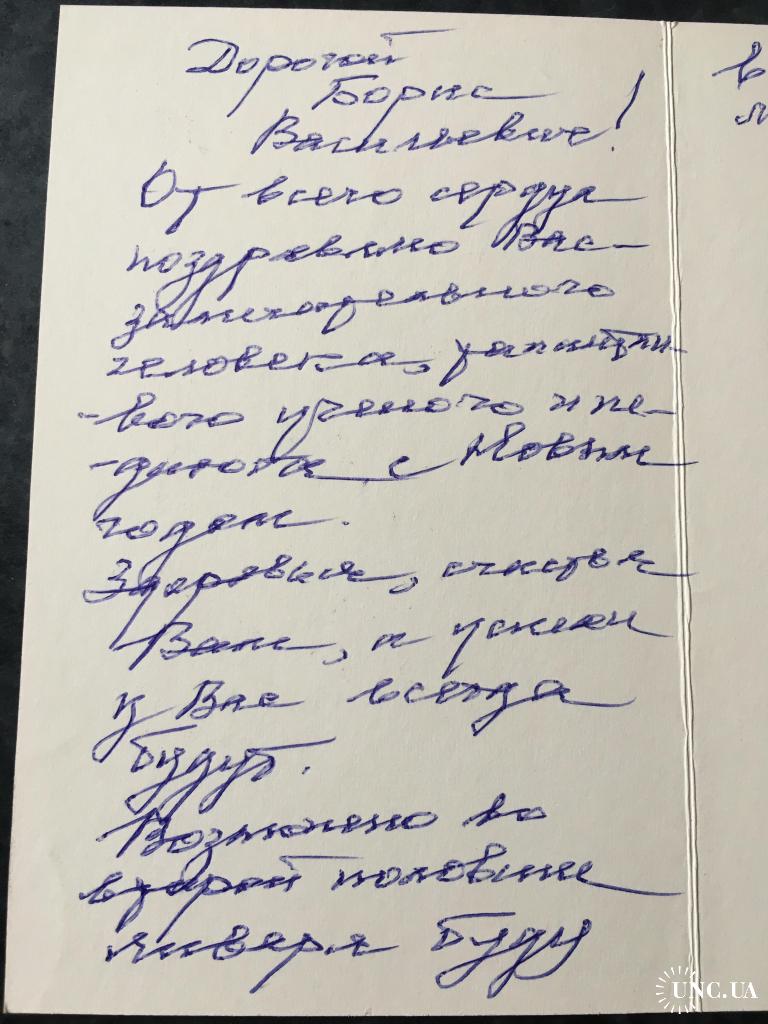 Дорогой
Борис
Васильевич!
От всего сердца
поздравляю Вас –
замечательного
человека, талантли-
-вого ученого и пе-
-дагога с Новым
годом.
Здоровья, счастья
Вам, а успехи
у Вас всегда
будут.
Возможно во
второй половине
января буду
в
UNC.UA